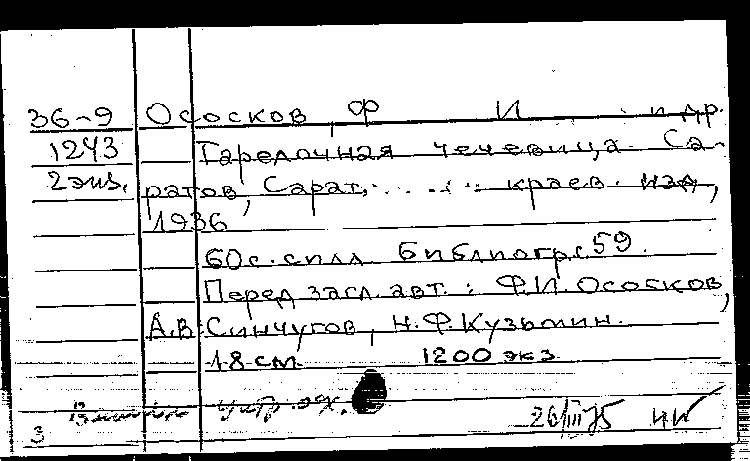 36-9 Ососков, Ф И и др.
1243 Тарелочная чечевица. Са-
2 экз. ратов, Сарат. краев. изд,
1936
60 с. с илл. Библиогр. с 59.
Перед загл. авт.: Ф.И. Ососков,
А.В. Синчугов, Н.Ф. Кузьмин.
18 см. 1200 экз
26/III 75
3